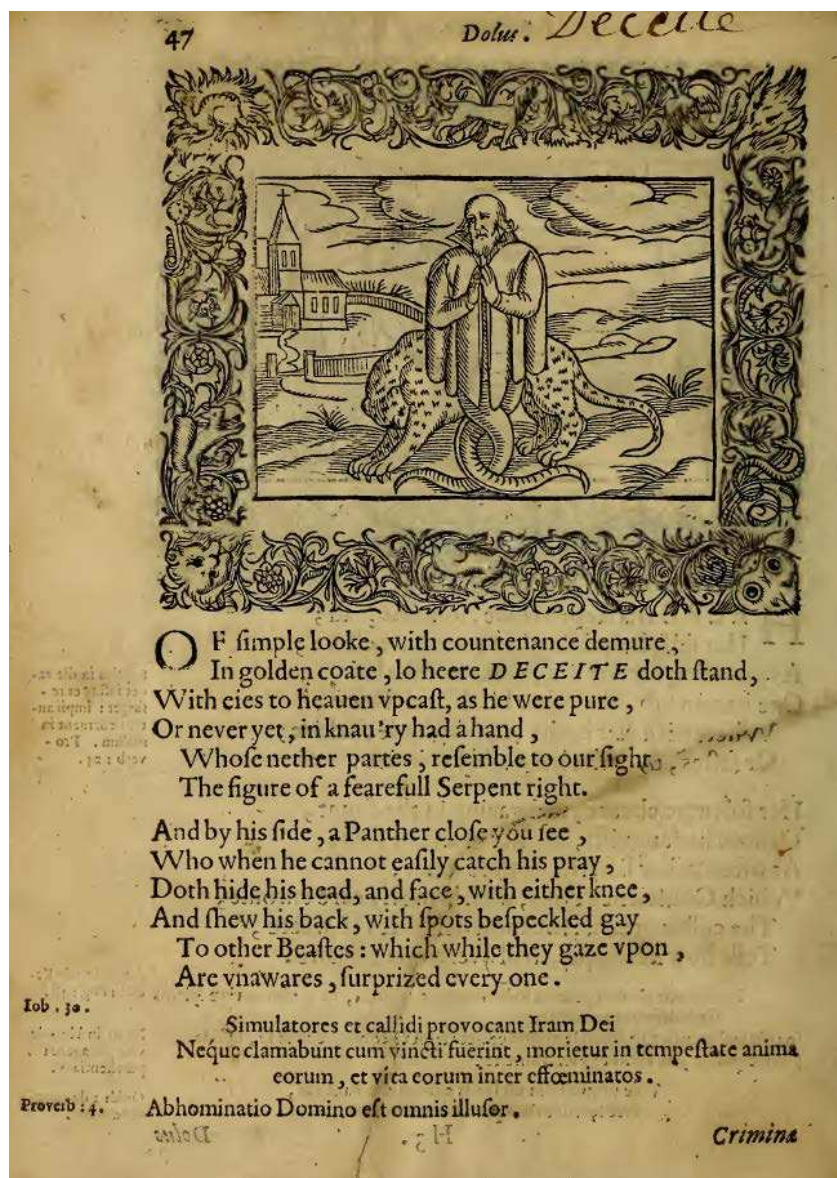 47
Dolus. Deceite
OF ſimple looke, with countenance demure,
In golden coate, lo heere DECEITE doth ſtand,
With eies to heauen vpcaſt, as he were pure,
Or never yet, in knau'ry had a hand,
Whoſe nether partes, reſemble to our ſight
The figure of a fearefull Serpent right.
And by his ſide, a Panther cloſe you ſee,
Who when he cannot eaſily catch his pray,
Doth hide his head, and face, with either knee,
And ſhew his back, with ſpots beſpeckled gay
To other Beaſtes: which while they gaze vpon,
Are vnawares, ſurprized every one.
Iob. 30.
Simulatores et callidi provocant Iram Dei
Neque clamabunt cum vincti fuerint, morietur in tempeſtate anima
eorum, et vita eorum inter effœminatos.
Proverb: 4. Abhominatio Domino eſt omnis illuſor.
Crimina